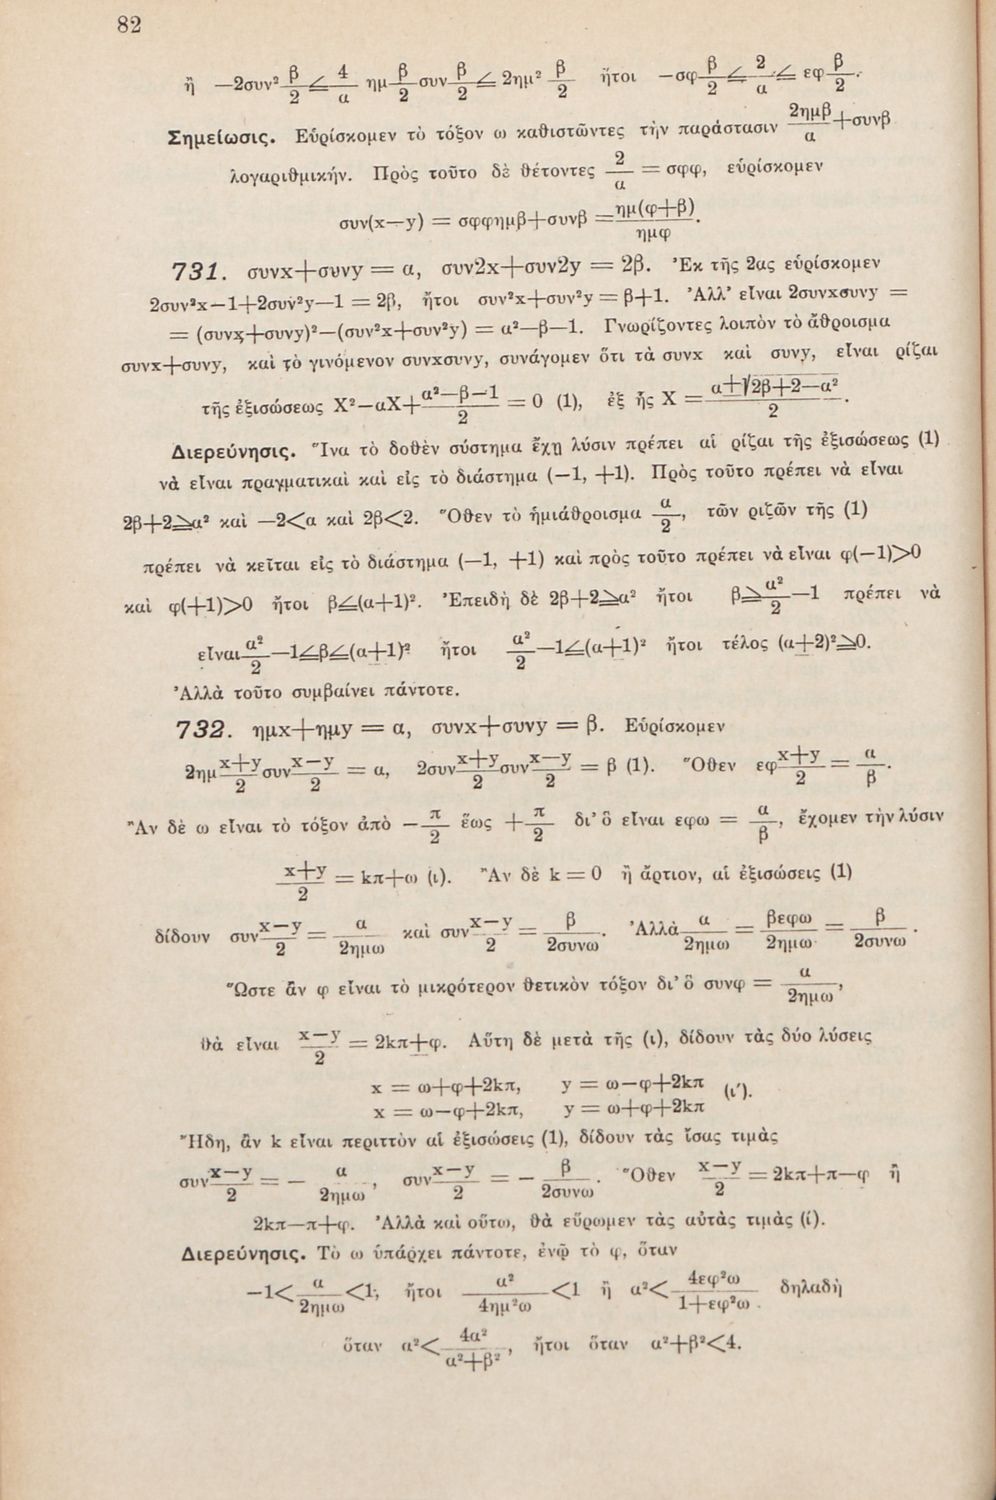 82
ἢ —2συν² β/2 ≤ 4/α ημ β/2 συν β/2 ≤ 2ημ² β/2 ἤτοι —σφ β/2 ≤ 2/α ≤ εφ β/2.
Σημείωσις. Εὑρίσκομεν τὸ τόξον ω καθιστῶντες τὴν παράστασιν 2ημβ/α +συνβ
λογαριθμικήν. Πρὸς τοῦτο δὲ θέτοντες 2/α = σφφ, εὑρίσκομεν
συν(x—y) = σφφημβ+συνβ = ημ(φ+β)/ημφ.
731. συνx+συνy = α, συν2x+συν2y = 2β. Ἐκ τῆς 2ας εὑρίσκομεν
2συν²x—1+2συν²y—1 = 2β, ἤτοι συν²x+συν²y = β+1. Ἀλλ’ εἶναι 2συνxσυνy =
= (συνx+συνy)²—(συν²x+συν²y) = α²—β—1. Γνωρίζοντες λοιπὸν τὸ ἄθροισμα
συνx+συνy, καὶ τὸ γινόμενον συνxσυνy, συνάγομεν ὅτι τὰ συνx καὶ συνy, εἶναι ρίζαι
τῆς ἐξισώσεως X²—αX+ (α²—β—1)/2 = 0 (1), ἐξ ἧς X = (α±√2β+2—α²)/2.
Διερεύνησις. Ἵνα τὸ δοθὲν σύστημα ἔχῃ λύσιν πρέπει αἱ ρίζαι τῆς ἐξισώσεως (1)
νὰ εἶναι πραγματικαὶ καὶ εἰς τὸ διάστημα (—1, +1). Πρὸς τοῦτο πρέπει νὰ εἶναι
2β+2≥α² καὶ —2<α καὶ 2β<2. Ὅθεν τὸ ἡμιάθροισμα α/2, τῶν ριζῶν τῆς (1)
πρέπει νὰ κεῖται εἰς τὸ διάστημα (—1, +1) καὶ πρὸς τοῦτο πρέπει νὰ εἶναι φ(—1)>0
καὶ φ(+1)>0 ἤτοι β≤(α+1)². Ἐπειδὴ δὲ 2β+2≥α² ἤτοι β≥ α²/2 —1 πρέπει νὰ
εἶναι α²/2 —1≤β≤(α±1)² ἤτοι α²/2 —1≤(α±1)² ἤτοι τέλος (α±2)²≥0.
Ἀλλὰ τοῦτο συμβαίνει πάντοτε.
732. ημx+ημy = α, συνx+συνy = β. Εὑρίσκομεν
2ημ (x+y)/2 συν (x—y)/2 = α, 2συν (x+y)/2 συν (x—y)/2 = β (1). Ὅθεν εφ (x+y)/2 = α/β.
Ἂν δὲ ω εἶναι τὸ τόξον ἀπὸ — π/2 ἕως + π/2 δι’ ὃ εἶναι εφω = α/β, ἔχομεν τὴν λύσιν
(x+y)/2 = kπ+ω (ι). Ἂν δὲ k = 0 ἢ ἄρτιον, αἱ ἐξισώσεις (1)
δίδουν συν (x—y)/2 = α/2ημω καὶ συν (x—y)/2 = β/2συνω. Ἀλλὰ α/2ημω = βεφω/2ημω = β/2συνω.
Ὥστε ἂν φ εἶναι τὸ μικρότερον θετικὸν τόξον δι’ ὃ συνφ = α/2ημω,
θὰ εἶναι (x—y)/2 = 2kπ±φ. Αὕτη δὲ μετὰ τῆς (ι), δίδουν τὰς δύο λύσεις
x = ω+φ+2kπ, y = ω—φ+2kπ (ι’).
x = ω—φ+2kπ, y = ω+φ+2kπ
Ἤδη, ἂν k εἶναι περιττὸν αἱ ἐξισώσεις (1), δίδουν τὰς ἴσας τιμὰς
συν (x—y)/2 = — α/2ημω, συν (x—y)/2 = — β/2συνω. Ὅθεν (x—y)/2 = 2kπ+π—φ ἢ
2kπ—π+φ. Ἀλλὰ καὶ οὕτω, θὰ εὕρωμεν τὰς αὐτὰς τιμὰς (ί).
Διερεύνησις. Τὸ ω ὑπάρχει πάντοτε, ἐνῷ τὸ φ, ὅταν
—1< α/2ημω <1, ἤτοι α²/4ημ²ω <1 ἢ α²< 4εφ²ω/1+εφ²ω. δηλαδὴ
ὅταν α²< 4α²/α²+β², ἤτοι ὅταν α²+β²<4.